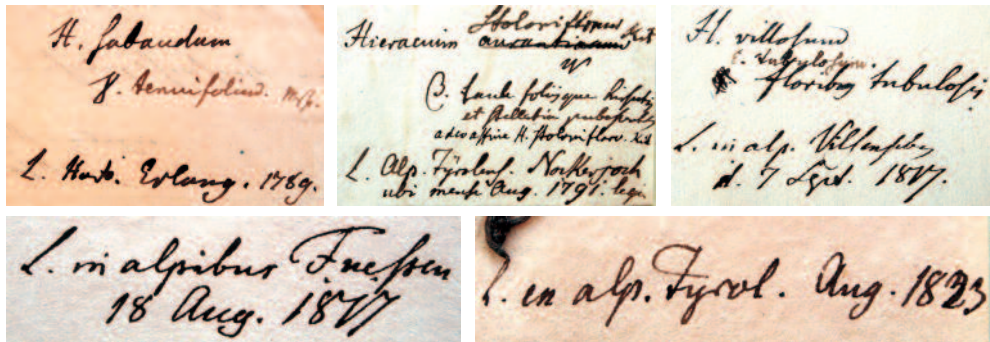 H. sabaudum
γ. tenuifolium.
L. Horto. Erlang. 1789.
stoloniflorum Kit
Hieracium aurantiacum
β. Caule foliisque hirsutis
et stellatim pubescentibus
adeo affine H. stoloniflor. Kit
L. Alp. Tyrolens. Nockerjoch
ubi mense Aug. 1791. legi
H. villosum
ε. tubulosum.
floribus tubulosis
L. in alp.
d. 7 Sept. 1817.
L. in alpibus Fuessen
18 Aug. 1817
L. in alp. Tyrol. Aug. 1823